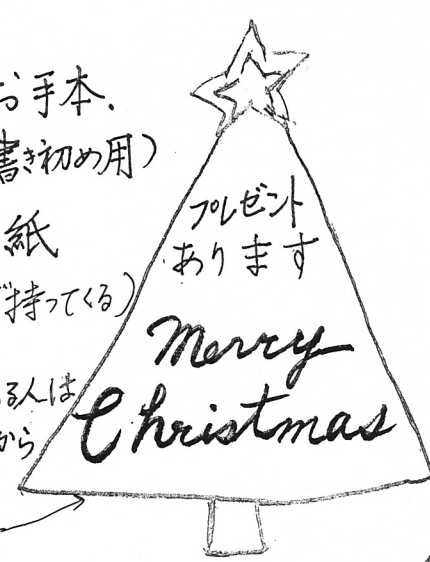 お手本、
書き初め用)
紙
持ってくる)
る人は
から
プレゼント
あります
Merry
Christmas